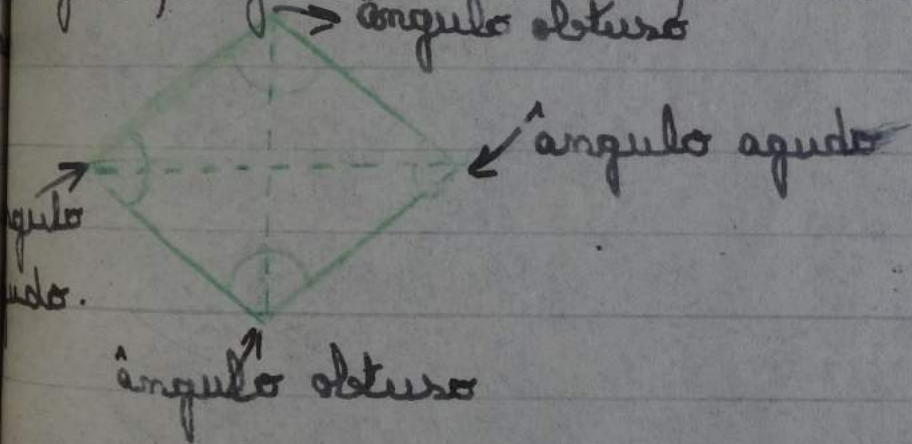 ângulo obtuso
ângulo agudo
gulo
udo.
ângulo obtuso